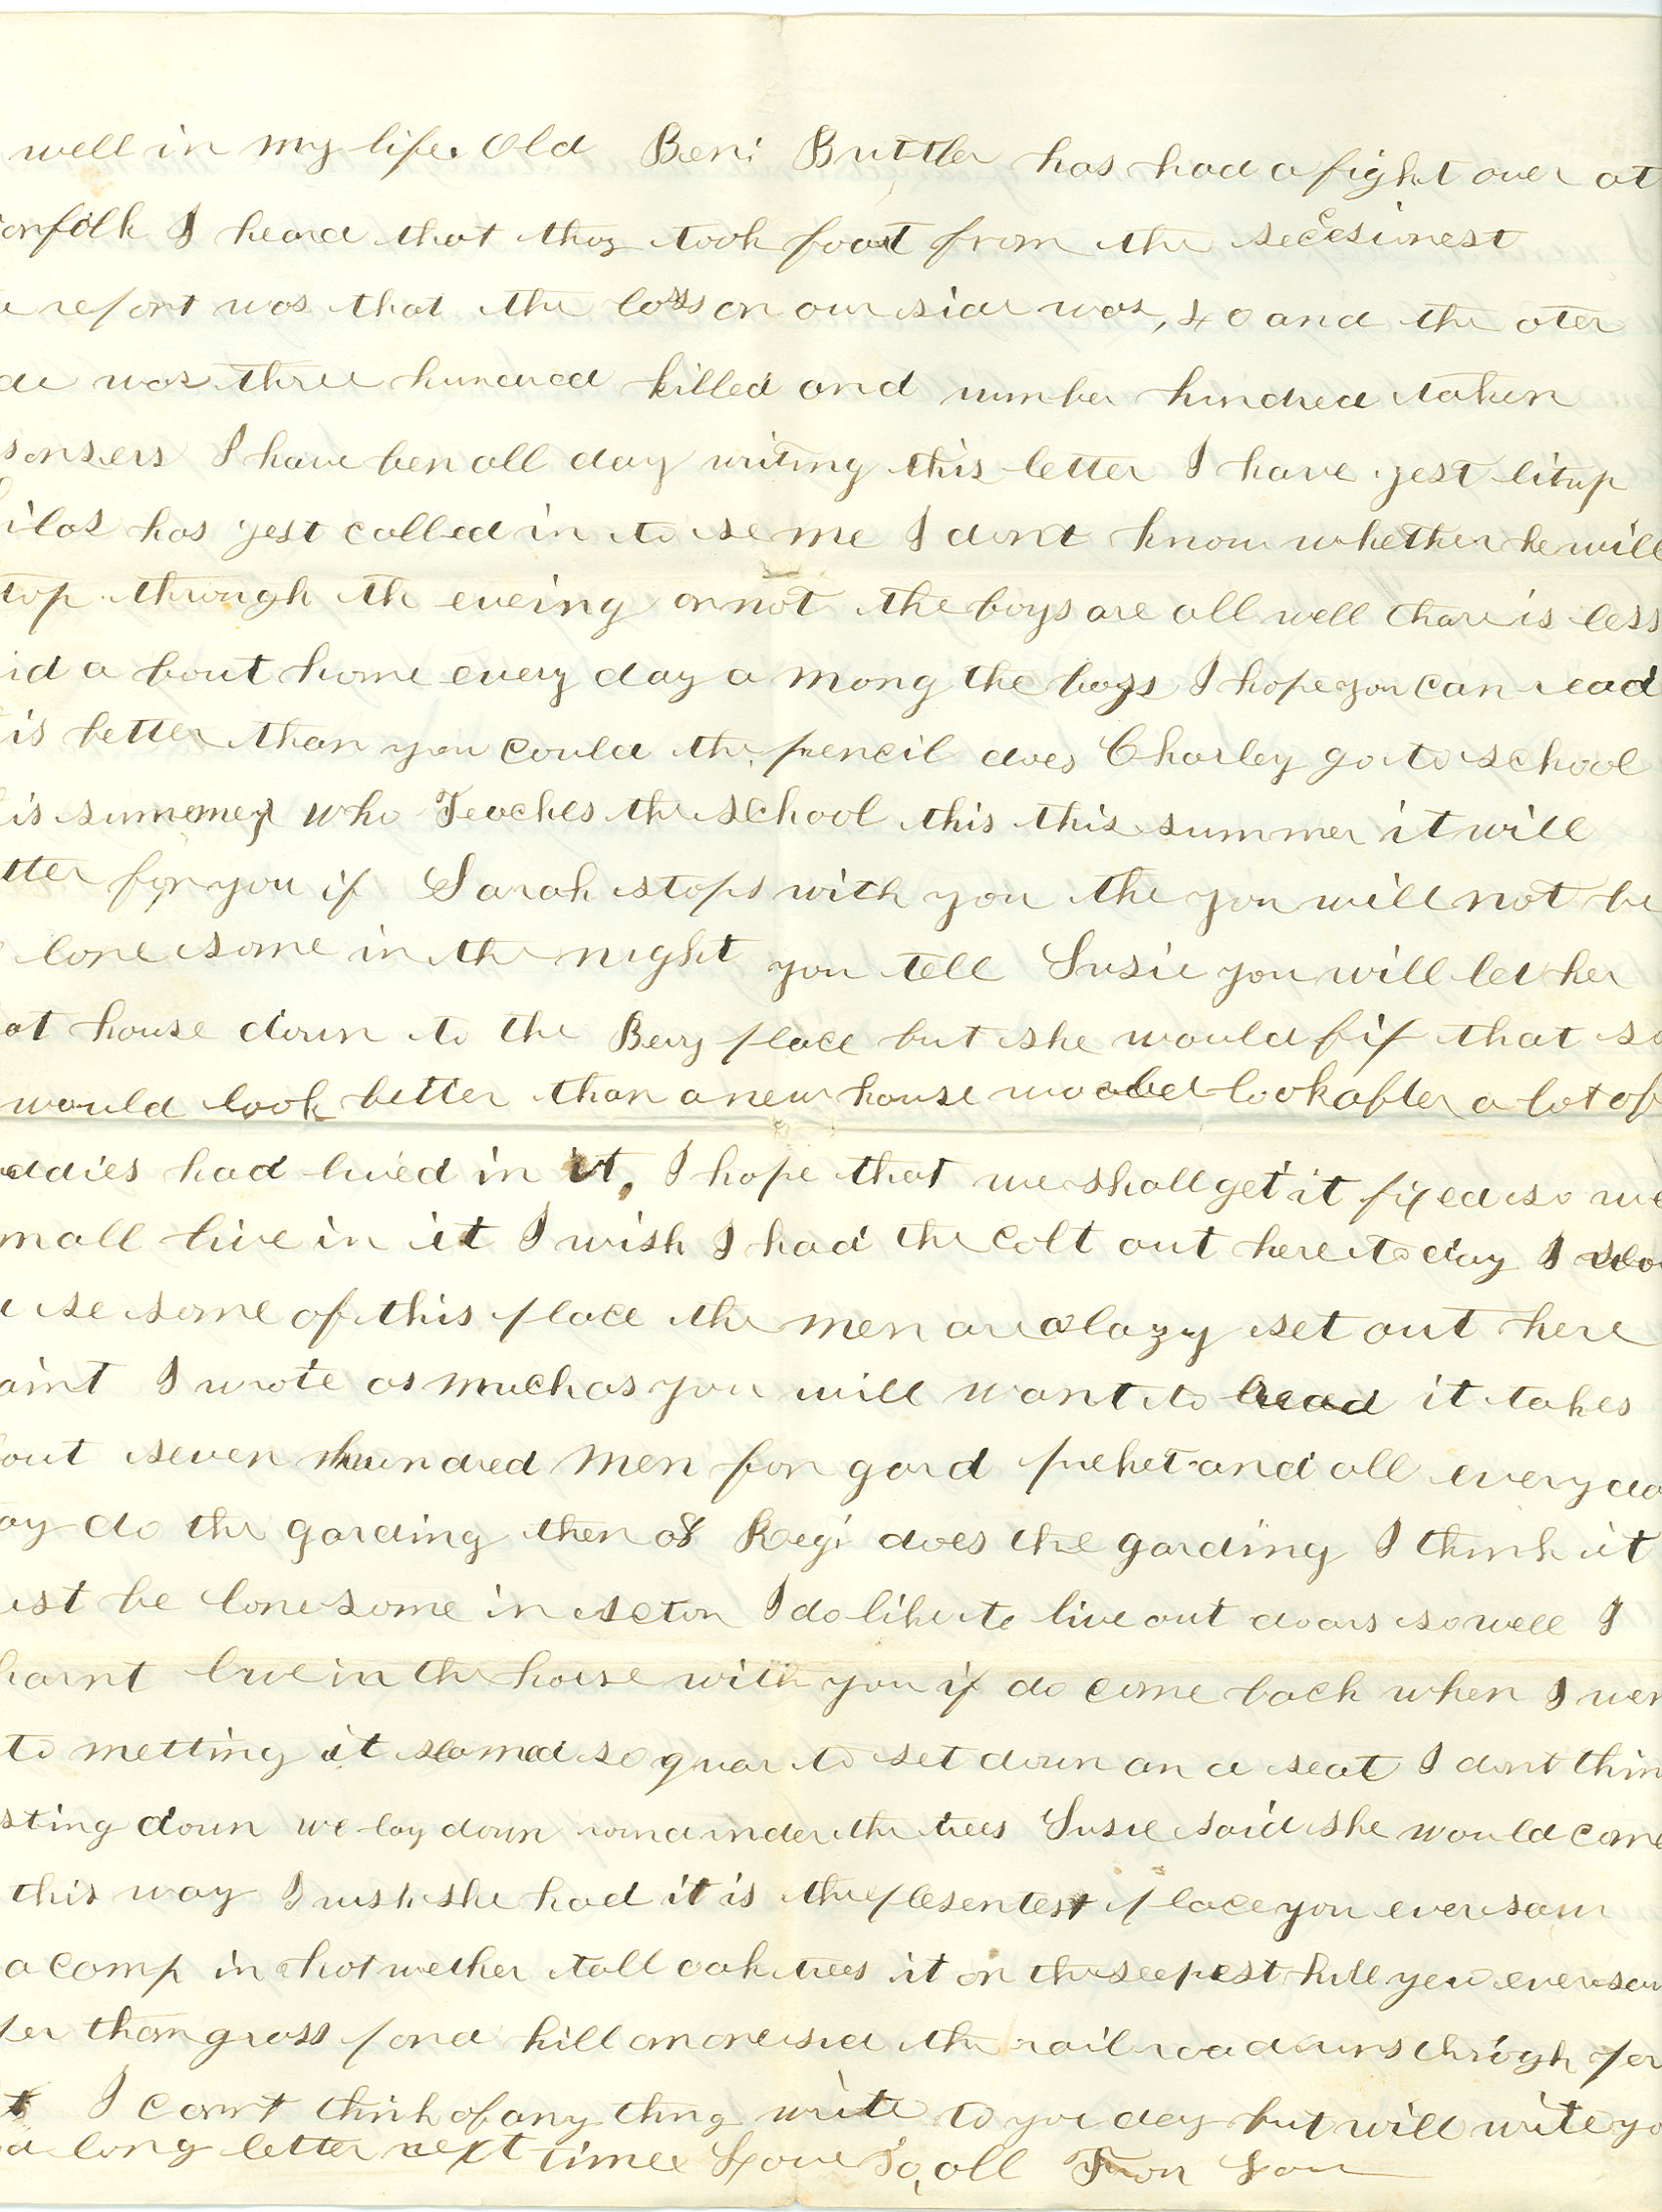 well in my life. Old Beni Buttler has had a fight over at
orfolk I heard that thay took foart from the secesionest
report was that the loss on our side was, 40 and the oter
de was three hundred killed and number hundred taken
sonsers I have ben all day writing this letter I have jest litup
ilas has jest called in to se me I dont know whether he will
top through th eveing or not the boys are all well thare is less
id a bout home every day a mong the boys I hope you can read
is better than you could the pencil does Charley go to school
is summer who Teaches the school this this summer it will
tter for you if Sarah stops with you the you will not be
lone some in the night you tell Susie you will let her
at house down to the Bery place but she would fif that so
would look better than a new house would look after a lot of
addies had lived in it, I hope that we shall get it fixed so we
mall live in it I wish I had the colt out here to day I
use some of this place the men are a lazy set out here
aint I wrote as much as you will want to read it takes
out seven hundred men for gard picket and all every da
ay do the garding then 08 Regi does the garding I think it
ust be lone some in seton I do like to live out doors so well I
harnt live in the house with you if do come back when I wen
to metting it seamed so quar to set down on a seat I dont thin
sting down we lay down round under the trees Susie said she would come
this way I wish she had it is the plesentest place you ever saw
a camp in hot wether tall oak trees it on the seepest hill you ever saw
ter than grass pond hill on one sid the rail road runs through
I carnt think of any thing write to you day but will write yo
a long letter next time Love to, all From